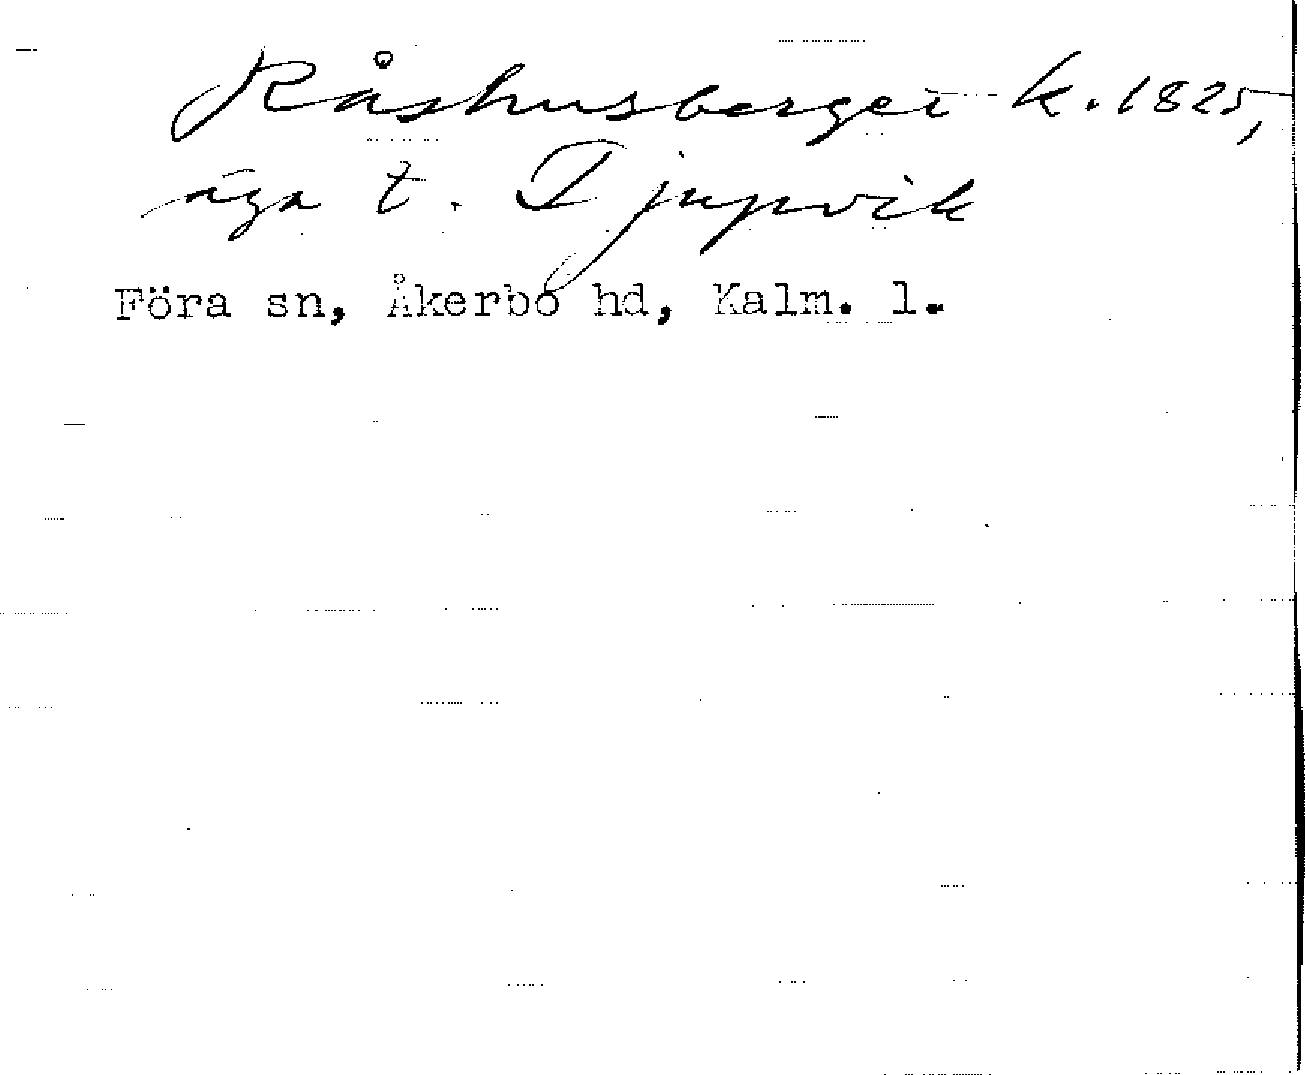 Råshusberget k. 1825,
äga t. Djupvik
Föra sn, Åkerbo hd, Kalm. l.